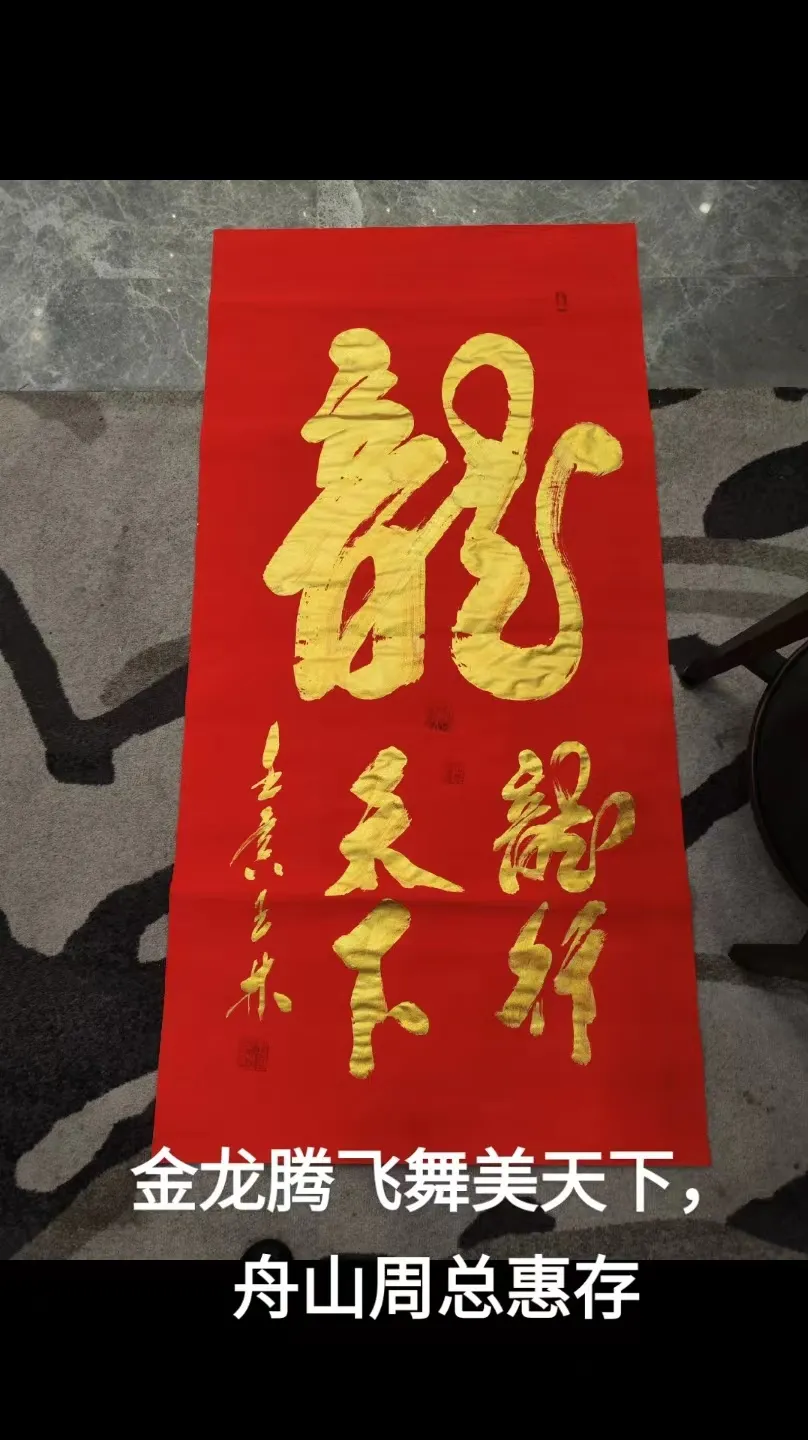 龍
龍行
天下
壬寅玉林
金龙腾飞舞美天下，
舟山周总惠存